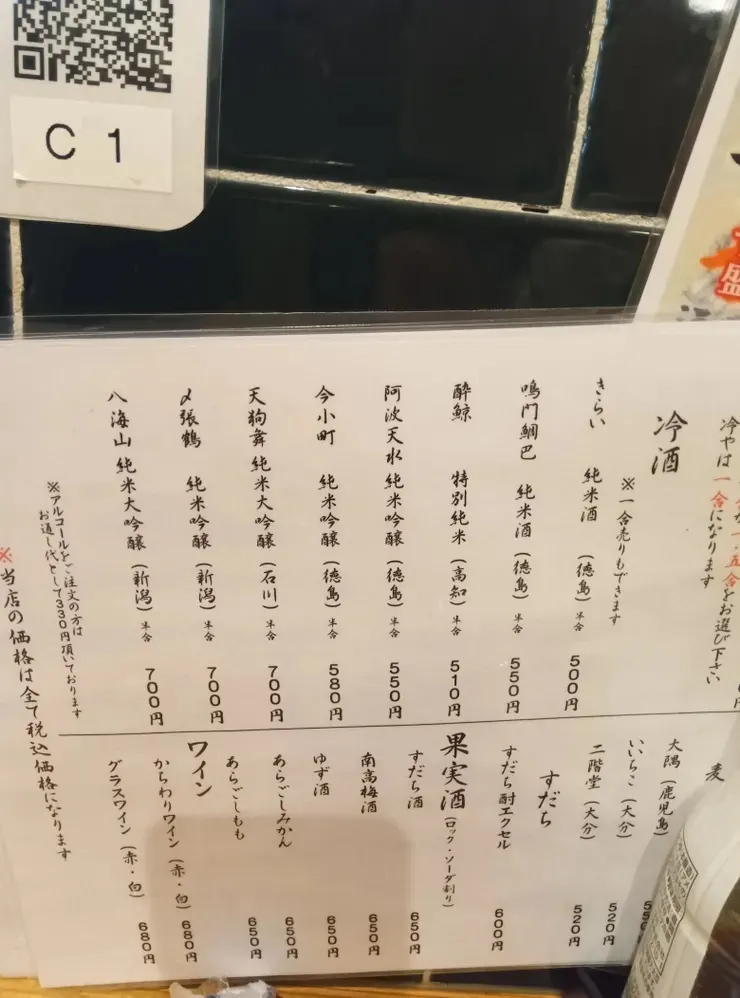 C 1
盛
冷やは一合になります
五合をお選び下さい
冷酒
※一合売りもできます
きらい 純米酒 (徳島) 半合 500円
鳴門鯛巴 純米酒 (徳島) 半合 550円
酔鯨 特別純米 (高知) 半合 510円
阿波天水 純米吟醸 (徳島) 半合 550円
今小町 純米吟醸 (徳島) 半合 580円
天狗舞 純米大吟醸 (石川) 半合 700円
〆張鶴 純米吟醸 (新潟) 半合 700円
八海山 純米大吟醸 (新潟) 半合 700円
※アルコールをご注文の方は
お通し代として330円頂いております
麦
大隅 (鹿児島)
いいちこ (大分) 520円
二階堂 (大分) 520円
すだち
すだち酎エクセル 600円
果実酒 (ロック・ソーダ割り)
すだち酒 650円
南高梅酒 650円
ゆず酒 650円
あらごしみかん 650円
あらごしもも 650円
ワイン
かちわりワイン (赤・白) 680円
グラスワイン (赤・白) 680円
※当店の価格は全て税込価格になります